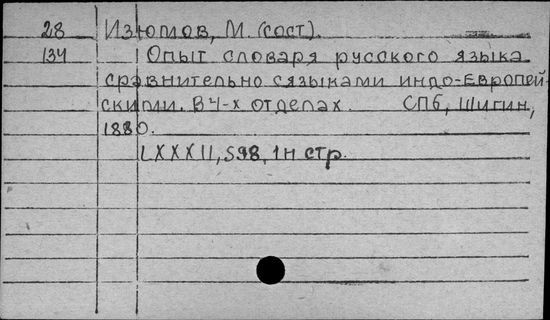 28 Изюмов, М. (сост).
134 Опыт словаря русского языка
сравнительно с языками индо-Европей-
скими. В 4-х отделах. СПб, Шигин,
1880.
LXXXII, 598, 1н стр.